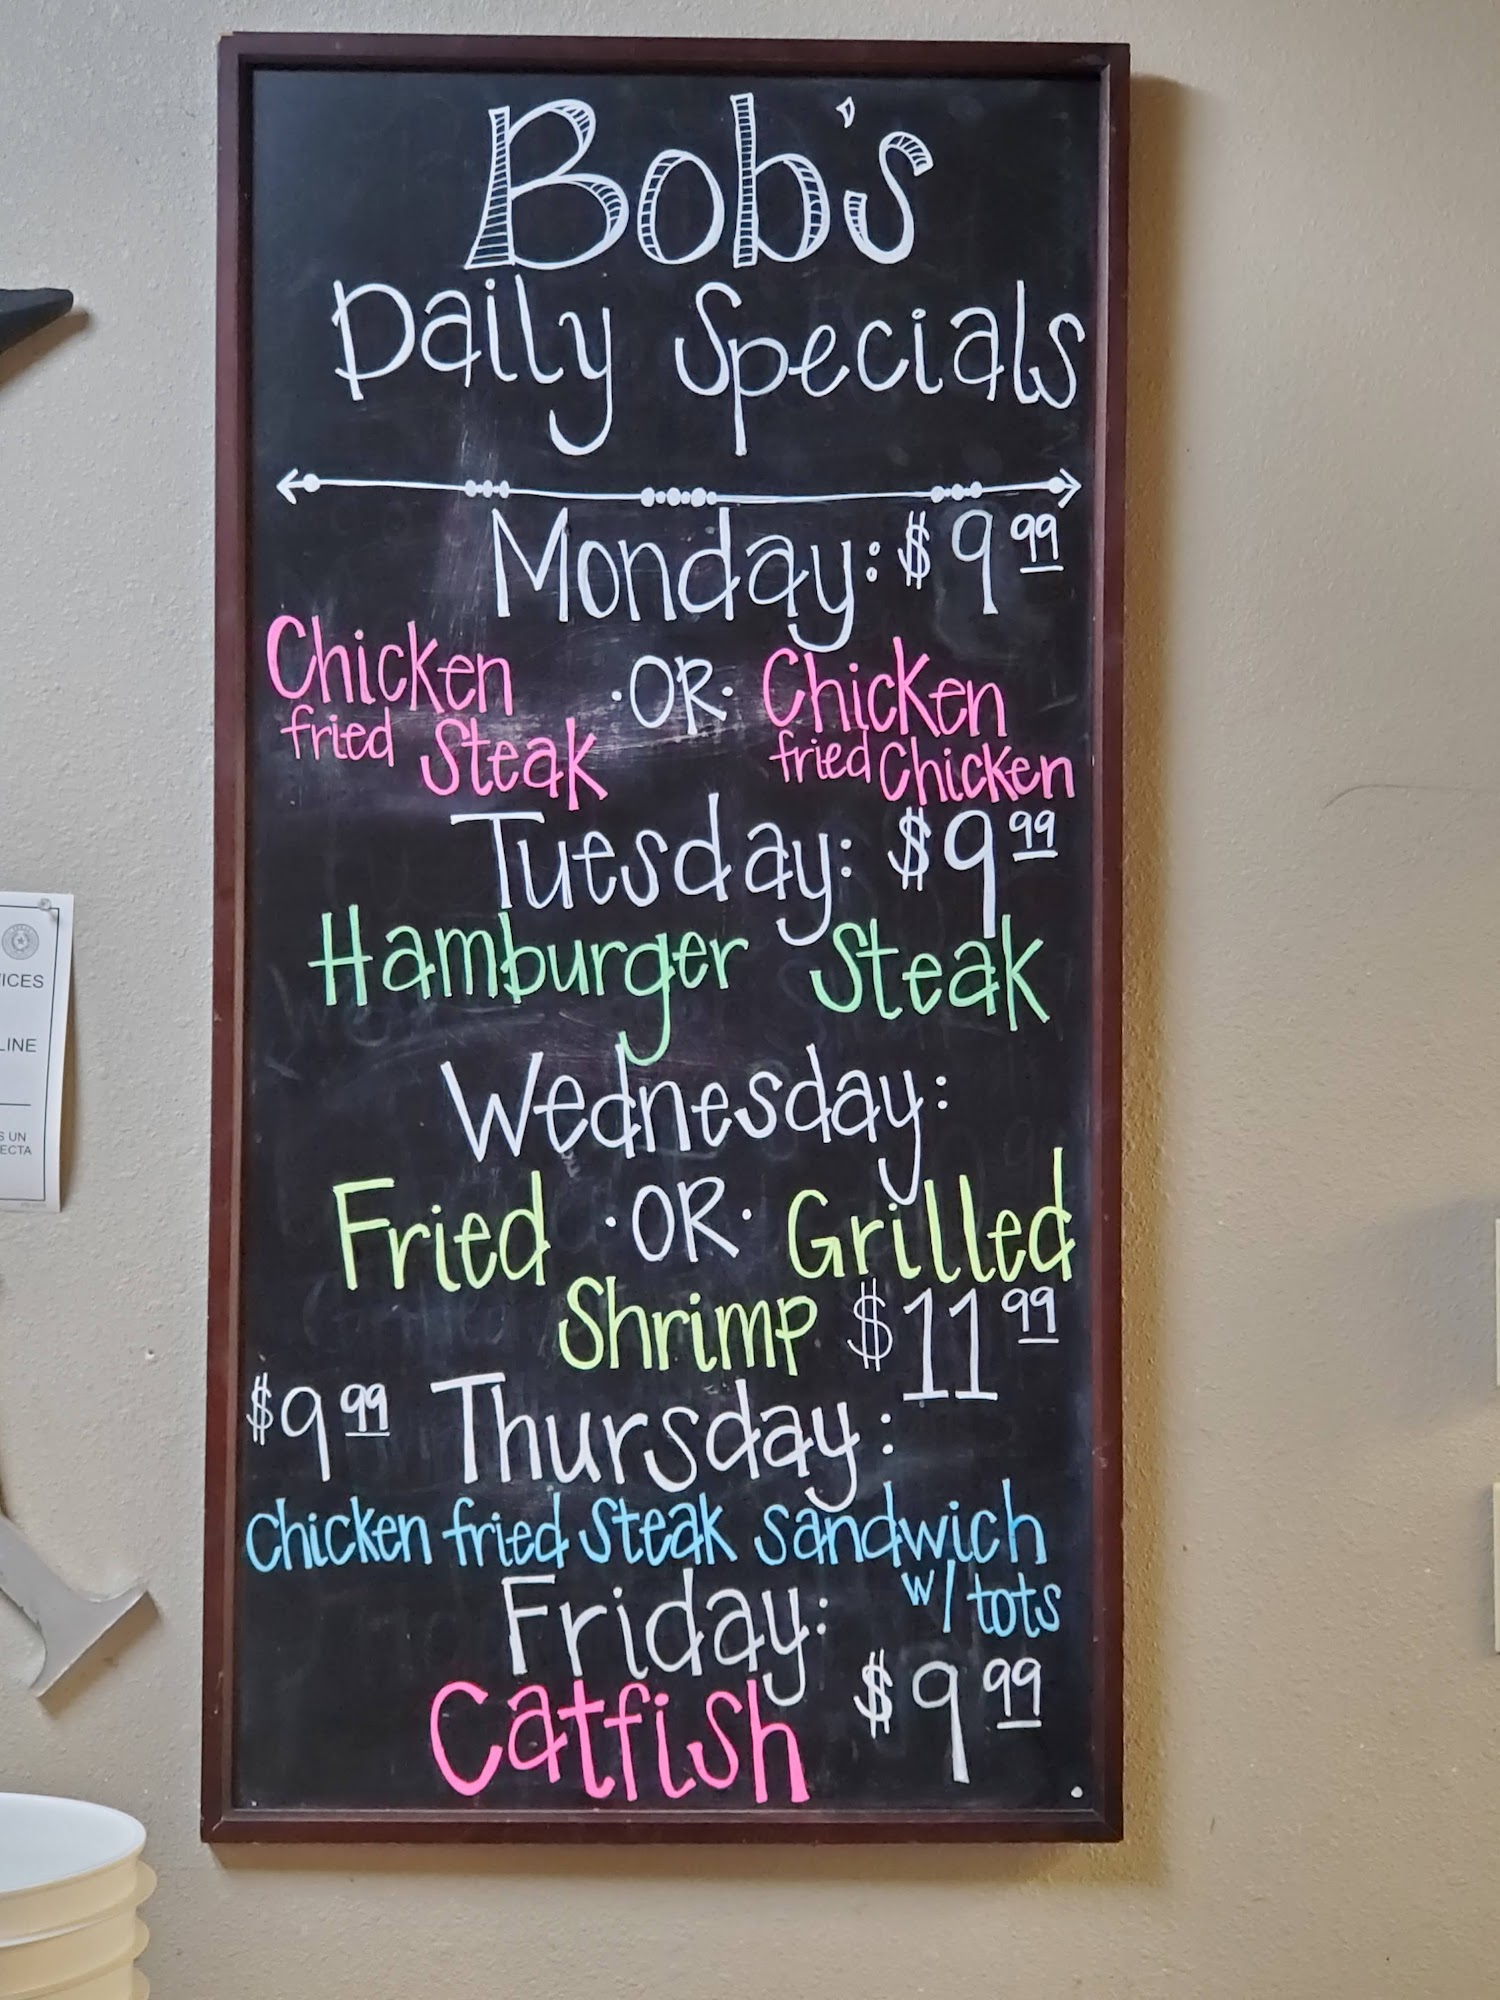 Bob's
Daily Specials
Monday: $9 99
Chicken fried Steak
·OR·
Chicken fried Chicken
Tuesday: $9 99
Hamburger Steak
Wednesday:
Fried ·OR· Grilled
Shrimp $11 99
$9 99 Thursday:
Chicken fried Steak Sandwich
w/ tots
Friday:
Catfish $9 99
ICES
LINE
S UN
ECTA